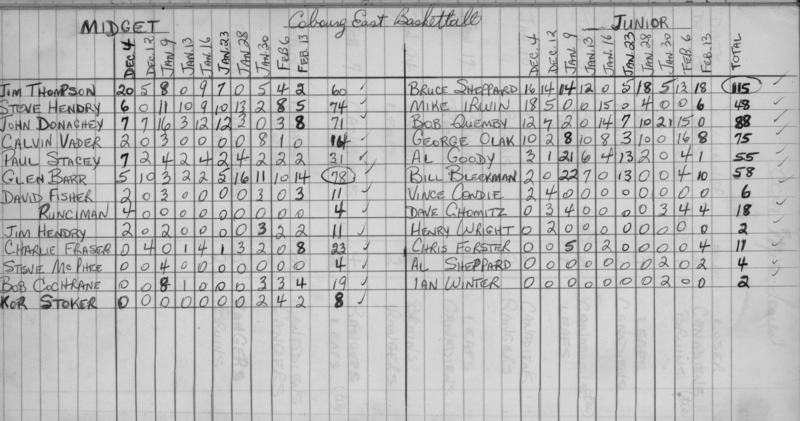 MIDGET Cobourg East Basketball JUNIOR
DEC. 4 DEC. 12 JAN. 9 JAN. 13 JAN. 16 JAN. 23 JAN. 28 JAN. 30 FEB 6 FEB. 13 DEC. 4 DEC. 12 JAN. 9 JAN. 13 JAN. 16 JAN. 23 JAN. 28 JAN. 30 FEB. 6 FEB. 13 TOTAL
JIM THOMPSON 20 5 8 0 9 7 0 5 4 2 60 BRUCE SHEPPARD 16 14 14 12 0 5 18 5 13 18 115
STEVE HENDRY 6 0 11 10 9 10 13 2 8 5 74 MIKE IRWIN 18 5 0 0 15 0 4 0 0 6 48
JOHN DONAGHEY 7 7 16 3 12 12 3 0 3 8 71 BOB QUEMBY 12 7 2 0 14 7 10 21 15 0 88
CALVIN VADER 2 0 3 0 0 0 0 8 1 0 14 GEORGE OLAK 10 2 8 10 8 3 10 0 16 8 75
PAUL STACEY 7 2 4 2 4 2 4 2 2 2 31 AL GOODY 3 1 21 6 4 13 2 0 4 1 55
GLEN BARR 5 10 3 2 2 5 16 11 10 14 78 BILL BLECKMAN 2 0 22 7 0 13 0 0 4 10 58
DAVID FISHER 2 0 3 0 0 0 0 3 0 3 11 VINCE CONDIE 2 4 0 0 0 0 0 0 0 0 6
RUNCIMAN 4 0 0 0 0 0 0 0 0 0 4 DAVE GHOMITZ 0 3 4 0 0 0 0 3 4 4 18
JIM HENDRY 2 0 2 0 0 0 0 3 2 2 11 HENRY WRIGHT 0 2 0 0 0 0 0 0 0 0 2
CHARLIE FRASER 0 4 0 1 4 1 3 2 0 8 23 CHRIS FORSTER 0 0 5 0 2 0 0 0 0 4 11
STEVE MCPHEE 0 0 4 0 0 0 0 0 0 0 4 AL SHEPPARD 0 0 0 0 0 0 0 2 0 2 4
BOB COCHRANE 0 0 8 1 0 0 0 3 3 4 19 IAN WINTER 0 0 0 0 0 0 0 2 0 0 2
KOR STOKER 0 0 0 0 0 0 0 2 4 2 8